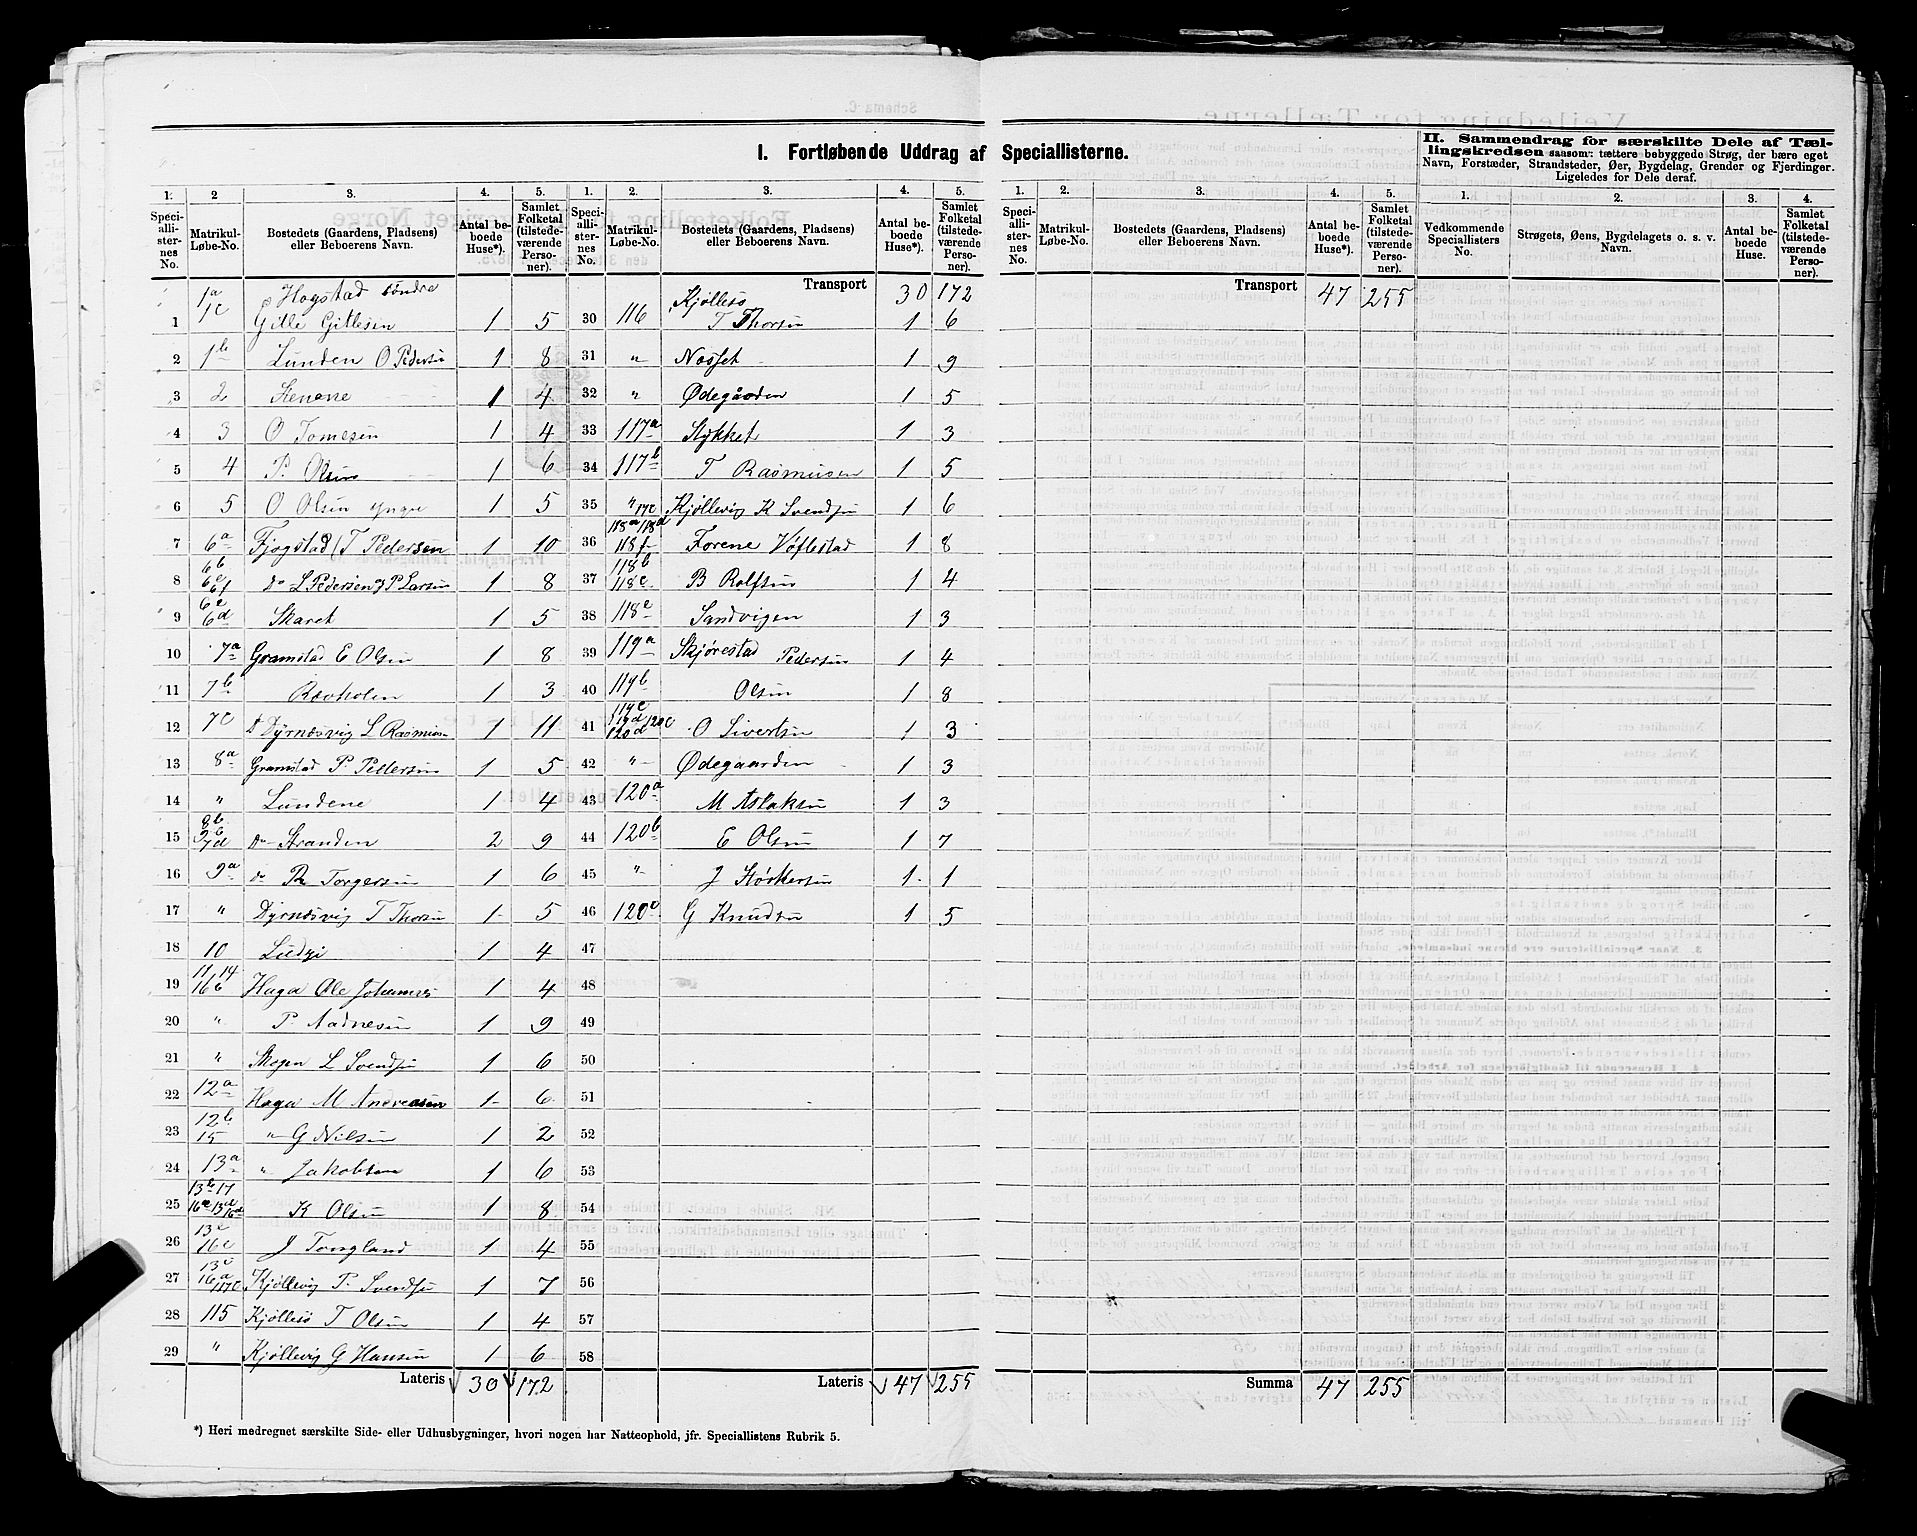 I. Fortløbende Uddrag af Speciallisterne.
1. 2 3. 4. 5.
Speciallisternes No. Matrikul-Løbe-No. Bostedets (Gaardens, Pladsens) eller Beboerens Navn. Antal beboede Huse*). Samlet Folketal (tilstedeværende Personer).
1 1a 1c Hogstad søndre Gitle Gitlesen 1 5
2 1b Lunden O Pedersen 1 8
3 2 Stenene 1 4
4 3 O Tomesen 1 4
5 4 P. Olsen 1 6
6 5 O Olsen yngre 1 5
7 6a Fjogstad T Pedersen 1 10
8 6b Do L Pedersen og P Larsen 1 8
9 6d Skaret 1 5
10 7a Gramstad E Olsen 1 8
11 7b Ravholen 1 3
12 7c Dyrnæsvig L Rasmus 1 11
13 8a Gramstad P. Pedersen 1 5
14 " Lundene 1 4
15 8b Do Stranden 2 9
16 9a do Torgersen 1 6
17 " Dyrnæsvig T Thorsen 1 5
18 10 Lutzi 1 4
19 11 14 16b Haga Ole Johannes 1 4
20 " P. Aadnesen 1 9
21 " Skogen L Svendsen 1 6
22 12a Haga M Andreasen 1 6
23 12b 15 " G Nilsen 1 2
24 13a " Jakobsen 1 6
25 K Olsen 1 8
26 16c J Tongland 1 4
27 16a Kjøllevig P. Svendsen 1 7
28 115 Kjøllesø T Olsen 1 4
29 " Kjøllevig G Hansen 1 6
Lateris 30 172
1. 2. 3. 4. 5.
Speciallisternes No. Matrikul-Løbe-No. Bostedets (Gaardens, Pladsens) eller Beboerens Navn. Antal beboede Huse*). Samlet Folketal (tilstedeværende Personer).
Transport 30 172
30 116 Kjøllesø T Thorsen 1 6
31 " Nosset 1 9
32 " Ødegården 1 5
33 117a Stykket 1 3
34 117b T Rasmusen 1 5
35 " 17c Kjøllevig K Svendsen 1 6
36 118a 118d 118f Forene Vøflestad 1 8
37 118b 118c B Rolfsen 1 4
38 118e Sandvigen 1 3
39 119a Skjørestad Pedersen 1 4
40 119b Olsen 1 8
41 119c 119d 120c 120d O Sivertsen 1 3
42 " Ødegaarden 1 3
43 120a M Aslaksen 1 3
44 120b E Olsen 1 7
45 " J Størkersen 1 1
46 120c G Knudsen 1 5
47
48
49
50
51
52
53
54
55
56
57
58
Lateris 47 255
*) Heri medregnet særskilte Side- eller Udhusbygninger, hvori nogen har Natteophold, jfr. Speciallistens Rubrik 5.
1. 2. 3. 4. 5.
Speciallisternes No. Matrikul-Løbe-No. Bostedets (Gaardens, Pladsens) eller Beboerens Navn. Antal beboede Huse*). Samlet Folketal (tilstedeværende Personer).
Transport 47 255
Summa 47 255
II. Sammendrag for særskilte Dele af Tællingskredsen saasom: tættere bebyggede Strøg, der bære eget
Navn, Forstæder, Strandsteder, Øer, Bygdelag, Grender og Fjerdinger.
Ligeledes for Dele deraf.
1. 2. 3. 4.
Vedkommende Speciallisters No. Strøgets, Øens, Bygdelagets o. s. v. Navn. Antal beboede Huse. Samlet Folketal (tilstedeværende Personer).